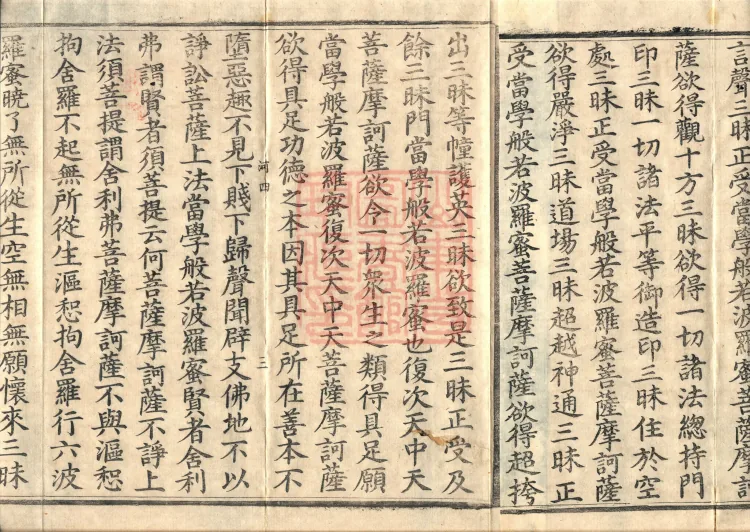 言聲三昧當學般若波羅蜜菩薩摩訶
薩欲得觀十方三昧欲得一切諸法總持門
印三昧一切諸法平等御造印三昧住於空
處三昧正受當學般若波羅蜜菩薩摩訶薩
欲得嚴淨三昧道場三昧超越神通三昧正
受當學般若波羅蜜菩薩摩訶薩欲得超挎
出三昧等幢護英三昧欲致是三昧正受及
餘三昧門當學般若波羅蜜也復次天中天
菩薩摩訶薩欲令一切衆生之類得具足願
當學般若波羅蜜復次天中天菩薩摩訶薩
欲得具足功德之本因其具足所在善本不
河四
三
墮惡趣不見下賤下歸聲聞辟支佛地不以
諍訟菩薩上法當學般若波羅蜜賢者舍利
弗謂賢者須菩提云何菩薩摩訶薩不諍上
法須菩提謂舍利弗菩薩摩訶薩不與漚惒
拘舍羅不起無所從生漚惒拘舍羅行六波
羅蜜曉了無所從生空無相無願懷來三昧